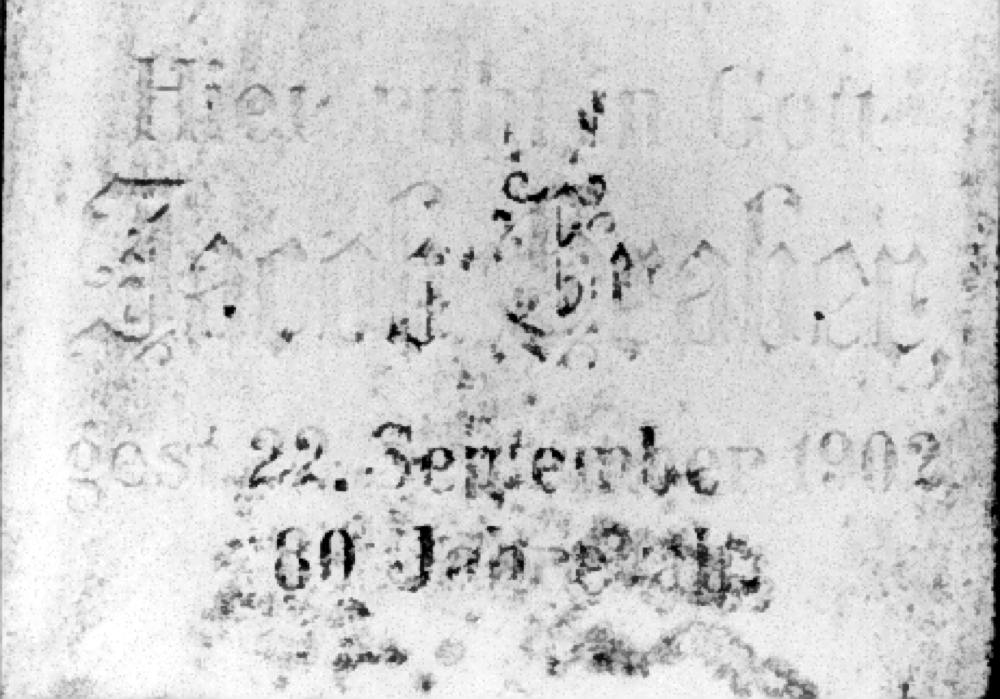 Hier ruht in Gott
Jacob Graber,
gest. 22. September 1902
80 Jahre alt.